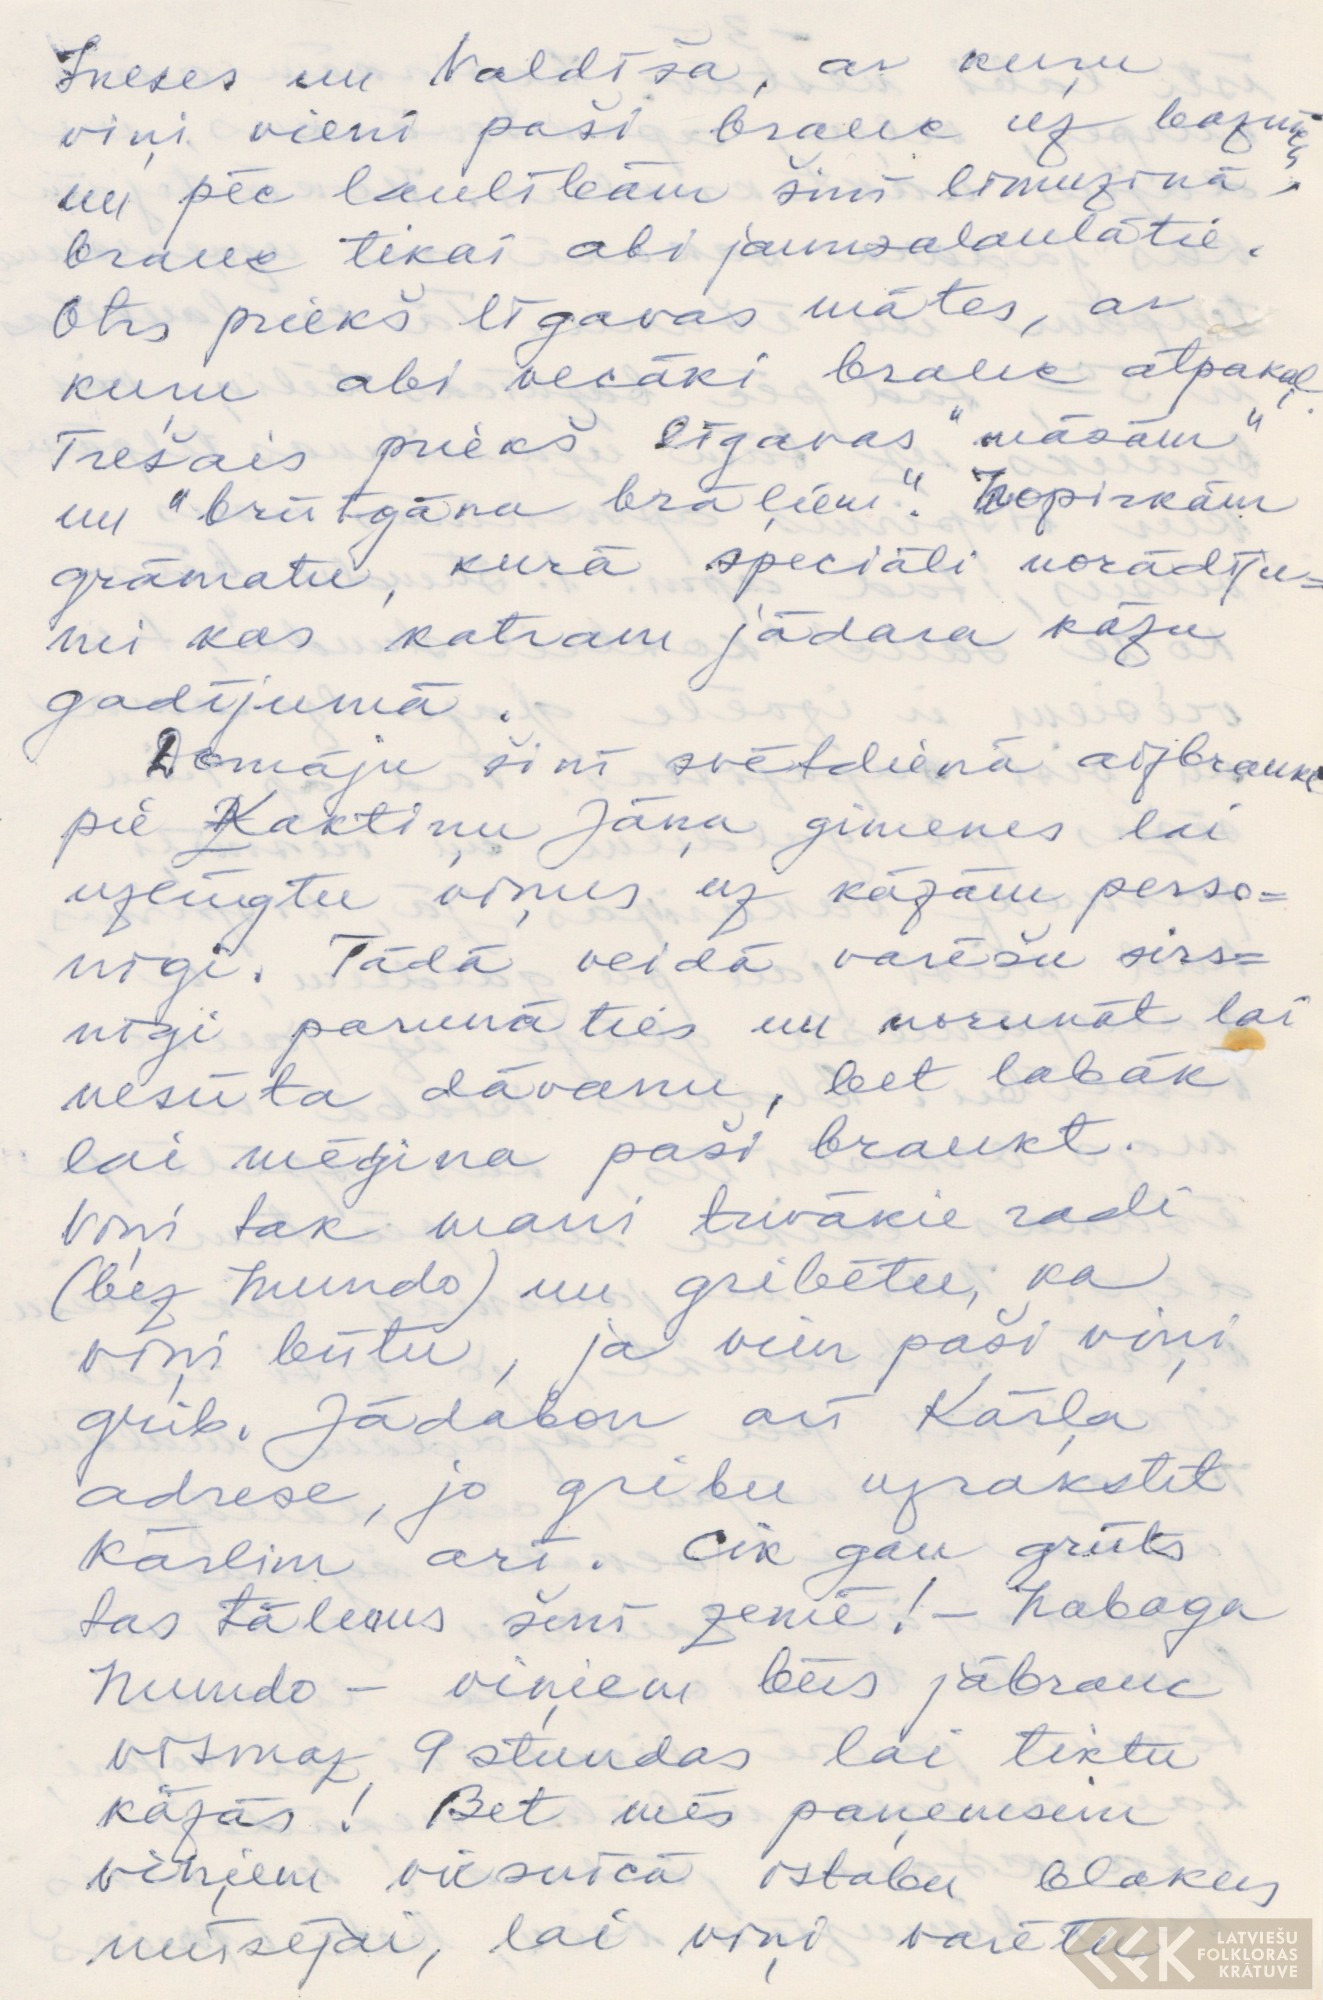 Ineses un Valdīša, ar kuŗu
viņi vieni paši brauc uz baznīcu
un pēc laulībām šinī limuzīnā
brauc tikai abi jaunsalaulātie.
Otrs priekš līgavas mātes, ar
kuŗu abi vecāki brauc atpakaļ.
Trešais priekš līgavas "māsām"
un "brūtgāna brāļiem". Nopirkām
grāmatu, kurā speciāli norādīju=
mi kas katram jādara kāzu
gadījumā.
Domāju šinī svētdienā aizbraukt
pie Kaktiņu Jāņa ģimenes lai
uzlūgtu viņus uz kāzām perso=
nīgi. Tādā veidā varēšu sirs=
nīgi parunāties un norunāt lai
nesūta dāvanu, bet labāk
lai mēģina paši braukt.
Viņi tak mani tuvākie radi
(bez Mundo) un gribētu, ka
viņi būtu, ja vien paši viņi
grib. Jādabon arī Kārļa
adrese, jo gribu uzrakstīt
Kārlim arī. Cik gan grūts
tas tālums šinī zemē! - Nabaga
Mundo - viņiem būs jābrauc
vismaz 9 stundas lai tiktu
kāzās! Bet mēs paņemsim
viņiem viesnīcā istabu blakus
mūsējai, lai viņi varētu
LATVIEŠU
FOLKLORAS
KRĀTUVE